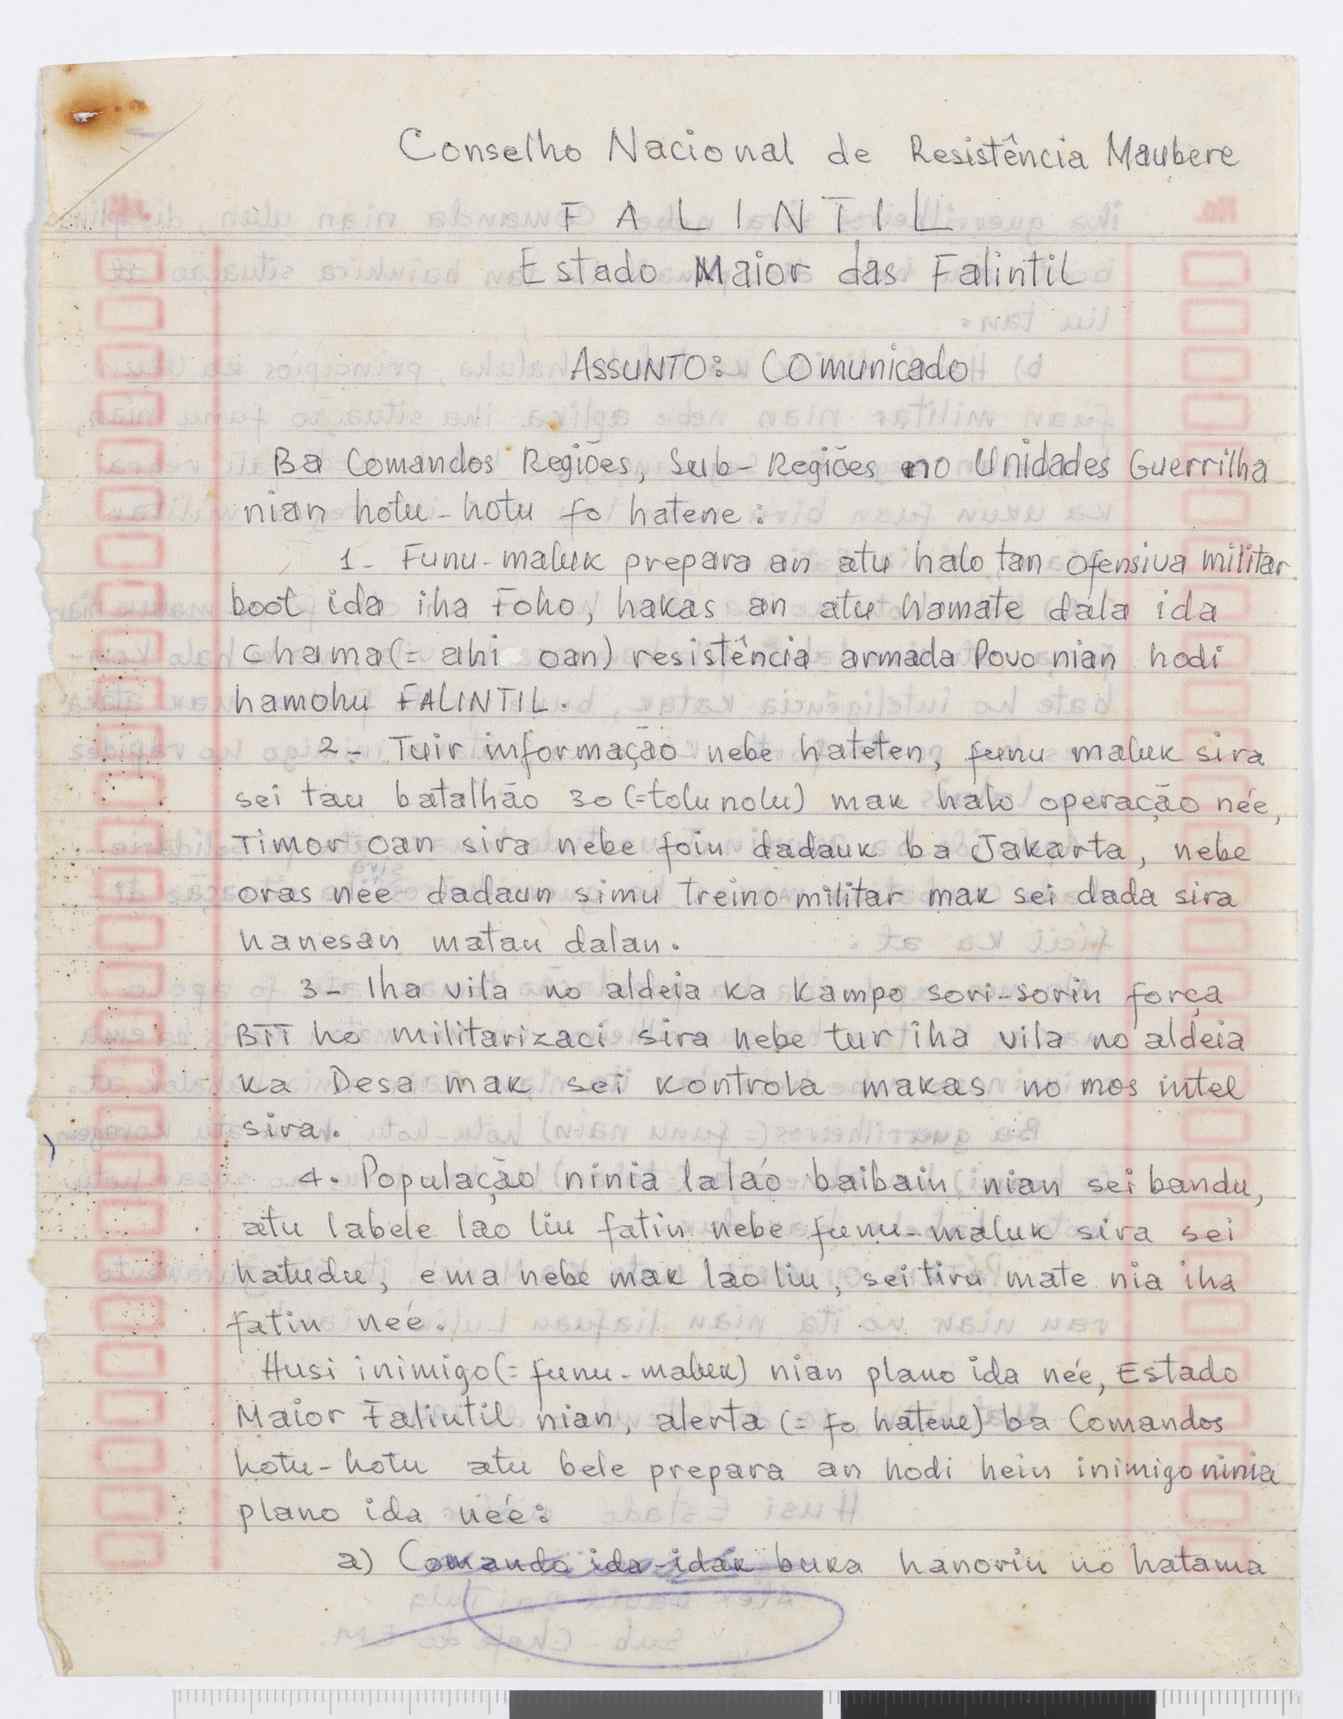 Conselho Nacional de Resistência Maubere
FALINTIL
Estado Maior das Falintil
ASSUNTO: Comunicado
Ba Comandos Regiões, Sub-Regiões no Unidades Guerrilha
nian hotu-hotu fo hatene:
1- Funu-maluk prepara an atu halo tan ofensiva militar
boot ida iha Foho, hakas an atu hamate dala ida
chama (= ahi oan) resistência armada Povo nian hodi
hamohu FALINTIL.
2- Tuir informação nebe hateten, funu maluk sira
sei tau batalhão 30 (=tolu nolu) mak halo operação née,
Timor oan sira nebe foin dadauk ba Jakarta, nebe
oras née dadaun simu treino militar mak sei dada sira
hanesan matan dalan.
3- Iha vila no aldeia ka Kampo sori-sorin força
BTT ho militarizaci sira nebe tur iha vila no aldeia
ka Desa mak sei kontrola makas no mos intel
sira.
4. População ninia lalaó baibain nian sei bandu,
atu labele lao liu fatin nebe funu-maluk sira sei
hatudu, ema nebe mak lao liu, sei tiru mate nia iha
fatin neé.
Husi inimigo (= funu-maluk) nian plano ida née, Estado
Maior Falintil nian, alerta (= fo hatene) ba Comandos
hotu-hotu atu bele prepara an hodi hein inimigo ninia
plano ida née:
a) Comando ida-idak buka hanorin no hatama